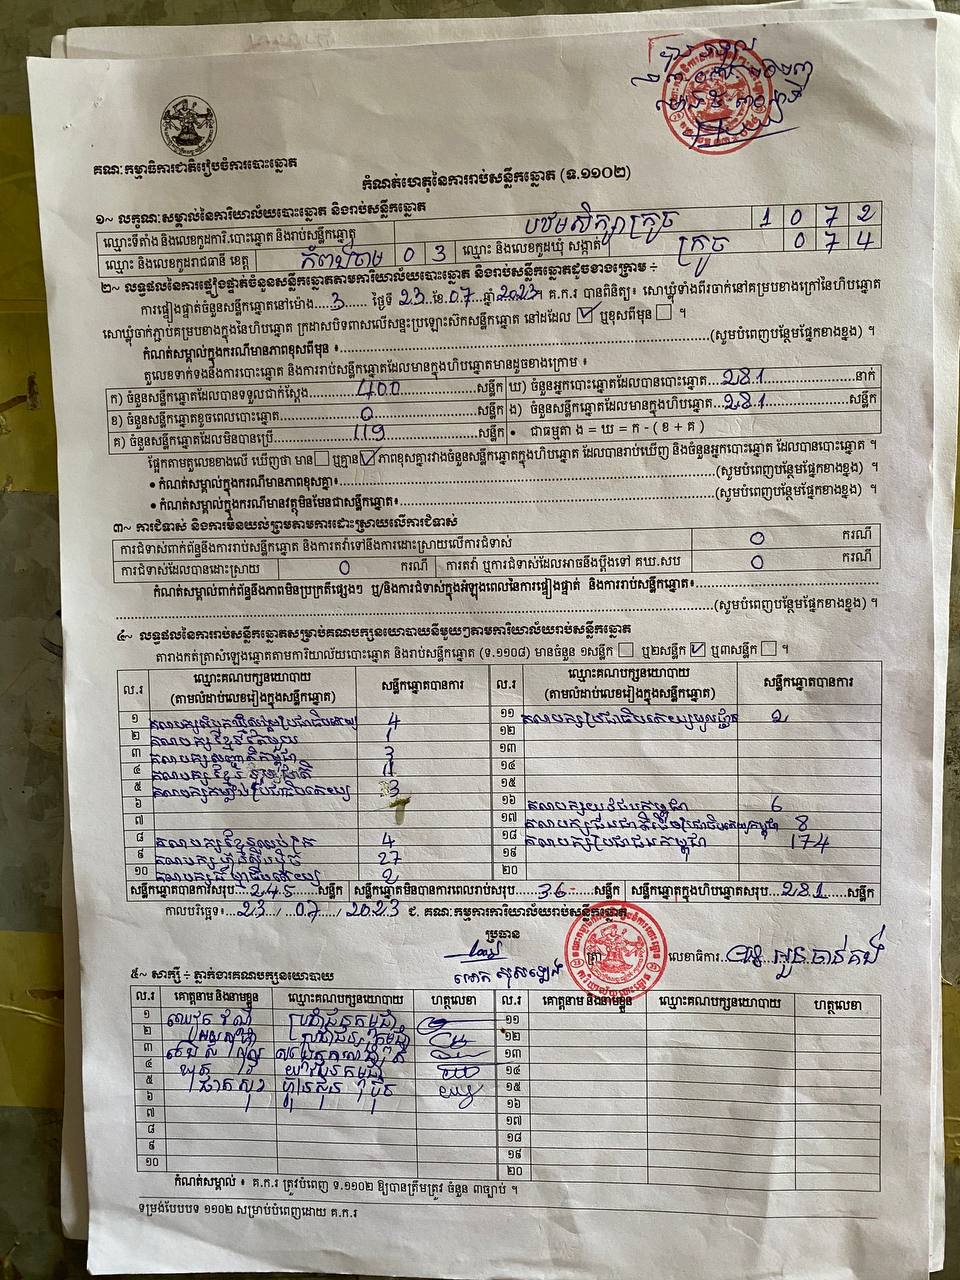 គណៈកម្មាធិការជាតិរៀបចំការបោះឆ្នោត
កំណត់ហេតុនៃការរាប់សន្លឹកឆ្នោត (ទ.១១០២)
១~ លក្ខណៈសម្គាល់នៃការិយាល័យបោះឆ្នោត និងរាប់សន្លឹកឆ្នោត
ឈ្មោះទីតាំង និងលេខកូដការិ.បោះឆ្នោត និងរាប់សន្លឹកឆ្នោត បឋមសិក្សាក្រូច 1 0 7 2
ឈ្មោះ និងលេខកូដរាជធានី ខេត្ត កំពង់ចាម 0 3 ឈ្មោះ និងលេខកូដឃុំ សង្កាត់ ក្រូច 0 7 4
២~ លទ្ធផលនៃការផ្ទៀងផ្ទាត់ចំនួនសន្លឹកឆ្នោតតាមការិយាល័យបោះឆ្នោត និងរាប់សន្លឹកឆ្នោតដូចខាងក្រោម ÷
ការផ្ទៀងផ្ទាត់ចំនួនសន្លឹកឆ្នោតនៅម៉ោង...3...... ថ្ងៃទី 23..ខែ.07...ឆ្នាំ 2023។ គ.ក.រ បានពិនិត្យ៖ សោឃ្លុំទាំងពីរចាក់នៅគម្របខាងក្រៅនៃហិបឆ្នោត
សោឃ្លុំចាក់ភ្ជាប់គម្របខាងក្នុងនៃហិបឆ្នោត ក្រដាសបិទពាសលើសន្ទះប្រឡោះស៊កសន្លឹកឆ្នោត នៅដដែល ☑ ឬខុសពីមុន ☐ ។
កំណត់សម្គាល់ក្នុងករណីមានភាពខុសពីមុន ៖......(សូមបំពេញបន្ថែមផ្នែកខាងខ្នង) ។
តួលេខទាក់ទងនឹងការបោះឆ្នោត និងការរាប់សន្លឹកឆ្នោតដែលមានក្នុងហិបឆ្នោតមានដូចខាងក្រោម ៖
ក) ចំនួនសន្លឹកឆ្នោតដែលបានទទួលជាក់ស្តែង......400......សន្លឹក ឃ) ចំនួនអ្នកបោះឆ្នោតដែលបានបោះឆ្នោត...281......នាក់
ខ) ចំនួនសន្លឹកឆ្នោតខូចពេលបោះឆ្នោត......0......សន្លឹក ង) ចំនួនសន្លឹកឆ្នោតដែលមានក្នុងហិបឆ្នោត...281......សន្លឹក
គ) ចំនួនសន្លឹកឆ្នោតដែលមិនបានប្រើ......119......សន្លឹក • ជាធម្មតា ង = ឃ = ក - ( ខ + គ )
ផ្អែកតាមតួលេខខាងលើ ឃើញថា មាន ☐ ឬគ្មាន ☑ ភាពខុសគ្នារវាងចំនួនសន្លឹកឆ្នោតក្នុងហិបឆ្នោត ដែលបានរាប់ឃើញ និងចំនួនអ្នកបោះឆ្នោត ដែលបានបោះឆ្នោត ។
• កំណត់សម្គាល់ក្នុងករណីមានភាពខុសគ្នា៖......(សូមបំពេញបន្ថែមផ្នែកខាងខ្នង) ។
• កំណត់សម្គាល់ក្នុងករណីមានវត្ថុមិនមែនជាសន្លឹកឆ្នោត៖......(សូមបំពេញបន្ថែមផ្នែកខាងខ្នង) ។
៣~ ការជំទាស់ និងការមិនយល់ព្រមតាមការដោះស្រាយលើការជំទាស់
ការជំទាស់ពាក់ព័ន្ធនឹងការរាប់សន្លឹកឆ្នោត និងការតវ៉ាទៅនឹងការដោះស្រាយលើការជំទាស់ 0 ករណី
ការជំទាស់ដែលបានដោះស្រាយ 0 ករណី ការតវ៉ា ឬការជំទាស់ដែលអាចនឹងប្តឹងទៅ គឃ.សប 0 ករណី
កំណត់សម្គាល់ពាក់ព័ន្ធនឹងភាពមិនប្រក្រតីផ្សេងៗ ឬ/និងការជំទាស់ក្នុងអំឡុងពេលនៃការផ្ទៀងផ្ទាត់ និងការរាប់សន្លឹកឆ្នោត៖......
......(សូមបំពេញបន្ថែមផ្នែកខាងខ្នង) ។
៤~ លទ្ធផលនៃការរាប់សន្លឹកឆ្នោតសម្រាប់គណបក្សនយោបាយនីមួយៗតាមការិយាល័យរាប់សន្លឹកឆ្នោត
តារាងកត់ត្រាសំឡេងឆ្នោតតាមការិយាល័យបោះឆ្នោត និងរាប់សន្លឹកឆ្នោត (ទ.១១០៨) មានចំនួន ១សន្លឹក ☐ ឬ២សន្លឹក ☑ ឬ៣សន្លឹក ☐ ។
ល.រ ឈ្មោះគណបក្សនយោបាយ (តាមលំដាប់លេខរៀងក្នុងសន្លឹកឆ្នោត) សន្លឹកឆ្នោតបានការ ល.រ ឈ្មោះគណបក្សនយោបាយ (តាមលំដាប់លេខរៀងក្នុងសន្លឹកឆ្នោត) សន្លឹកឆ្នោតបានការ
១ 4 ១១ គណបក្សប្រជាធិបតេយ្យមូលដ្ឋាន 2
២ គណបក្សខ្មែររួបរួម 1 ១២
៣ គណបក្សសញ្ជាតិកម្ពុជា 3 ១៣
៤ គណបក្សខ្មែរ ១៤
៥ គណបក្សកម្លាំងប្រជាធិបតេយ្យ 3 ១៥
៦ ១៦ គណបក្សយុវជនកម្ពុជា 6
៧ ១៧ 8
៨ 4 ១៨ គណបក្សប្រជាជនកម្ពុជា 174
៩ គណបក្សហ៊្វុនស៊ិនប៉ិច 27 ១៩
១០ 2 ២០
សន្លឹកឆ្នោតបានការសរុប...245......សន្លឹក សន្លឹកឆ្នោតមិនបានការពេលរាប់សរុប...36......សន្លឹក សន្លឹកឆ្នោតក្នុងហិបឆ្នោតសរុប...281......សន្លឹក
កាលបរិច្ឆេទ៖...23./.07.../2023 ជ. គណៈកម្មការការិយាល័យរាប់សន្លឹកឆ្នោត
ប្រធាន
ត្រា លេខាធិការ
៥~ សាក្សី ÷ ភ្នាក់ងារគណបក្សនយោបាយ
ល.រ គោត្តនាម និងនាមខ្លួន ឈ្មោះគណបក្សនយោបាយ ហត្ថលេខា ល.រ គោត្តនាម និងនាមខ្លួន ឈ្មោះគណបក្សនយោបាយ ហត្ថលេខា
១ ប្រជាជនកម្ពុជា ១១
២ ប្រជាជនកម្ពុជា ១២
៣ ១៣
៤ យុវជនកម្ពុជា ១៤
៥ ហ៊្វុនស៊ិនប៉ិច ១៥
៦ ១៦
៧ ១៧
៨ ១៨
៩ ១៩
១០ ២០
កំណត់សម្គាល់ ៖ គ.ក.រ ត្រូវបំពេញ ទ.១១០២ ឱ្យបានត្រឹមត្រូវ ចំនួន ៣ច្បាប់ ។
ទម្រង់បែបបទ ១១០២ សម្រាប់បំពេញដោយ គ.ក.រ